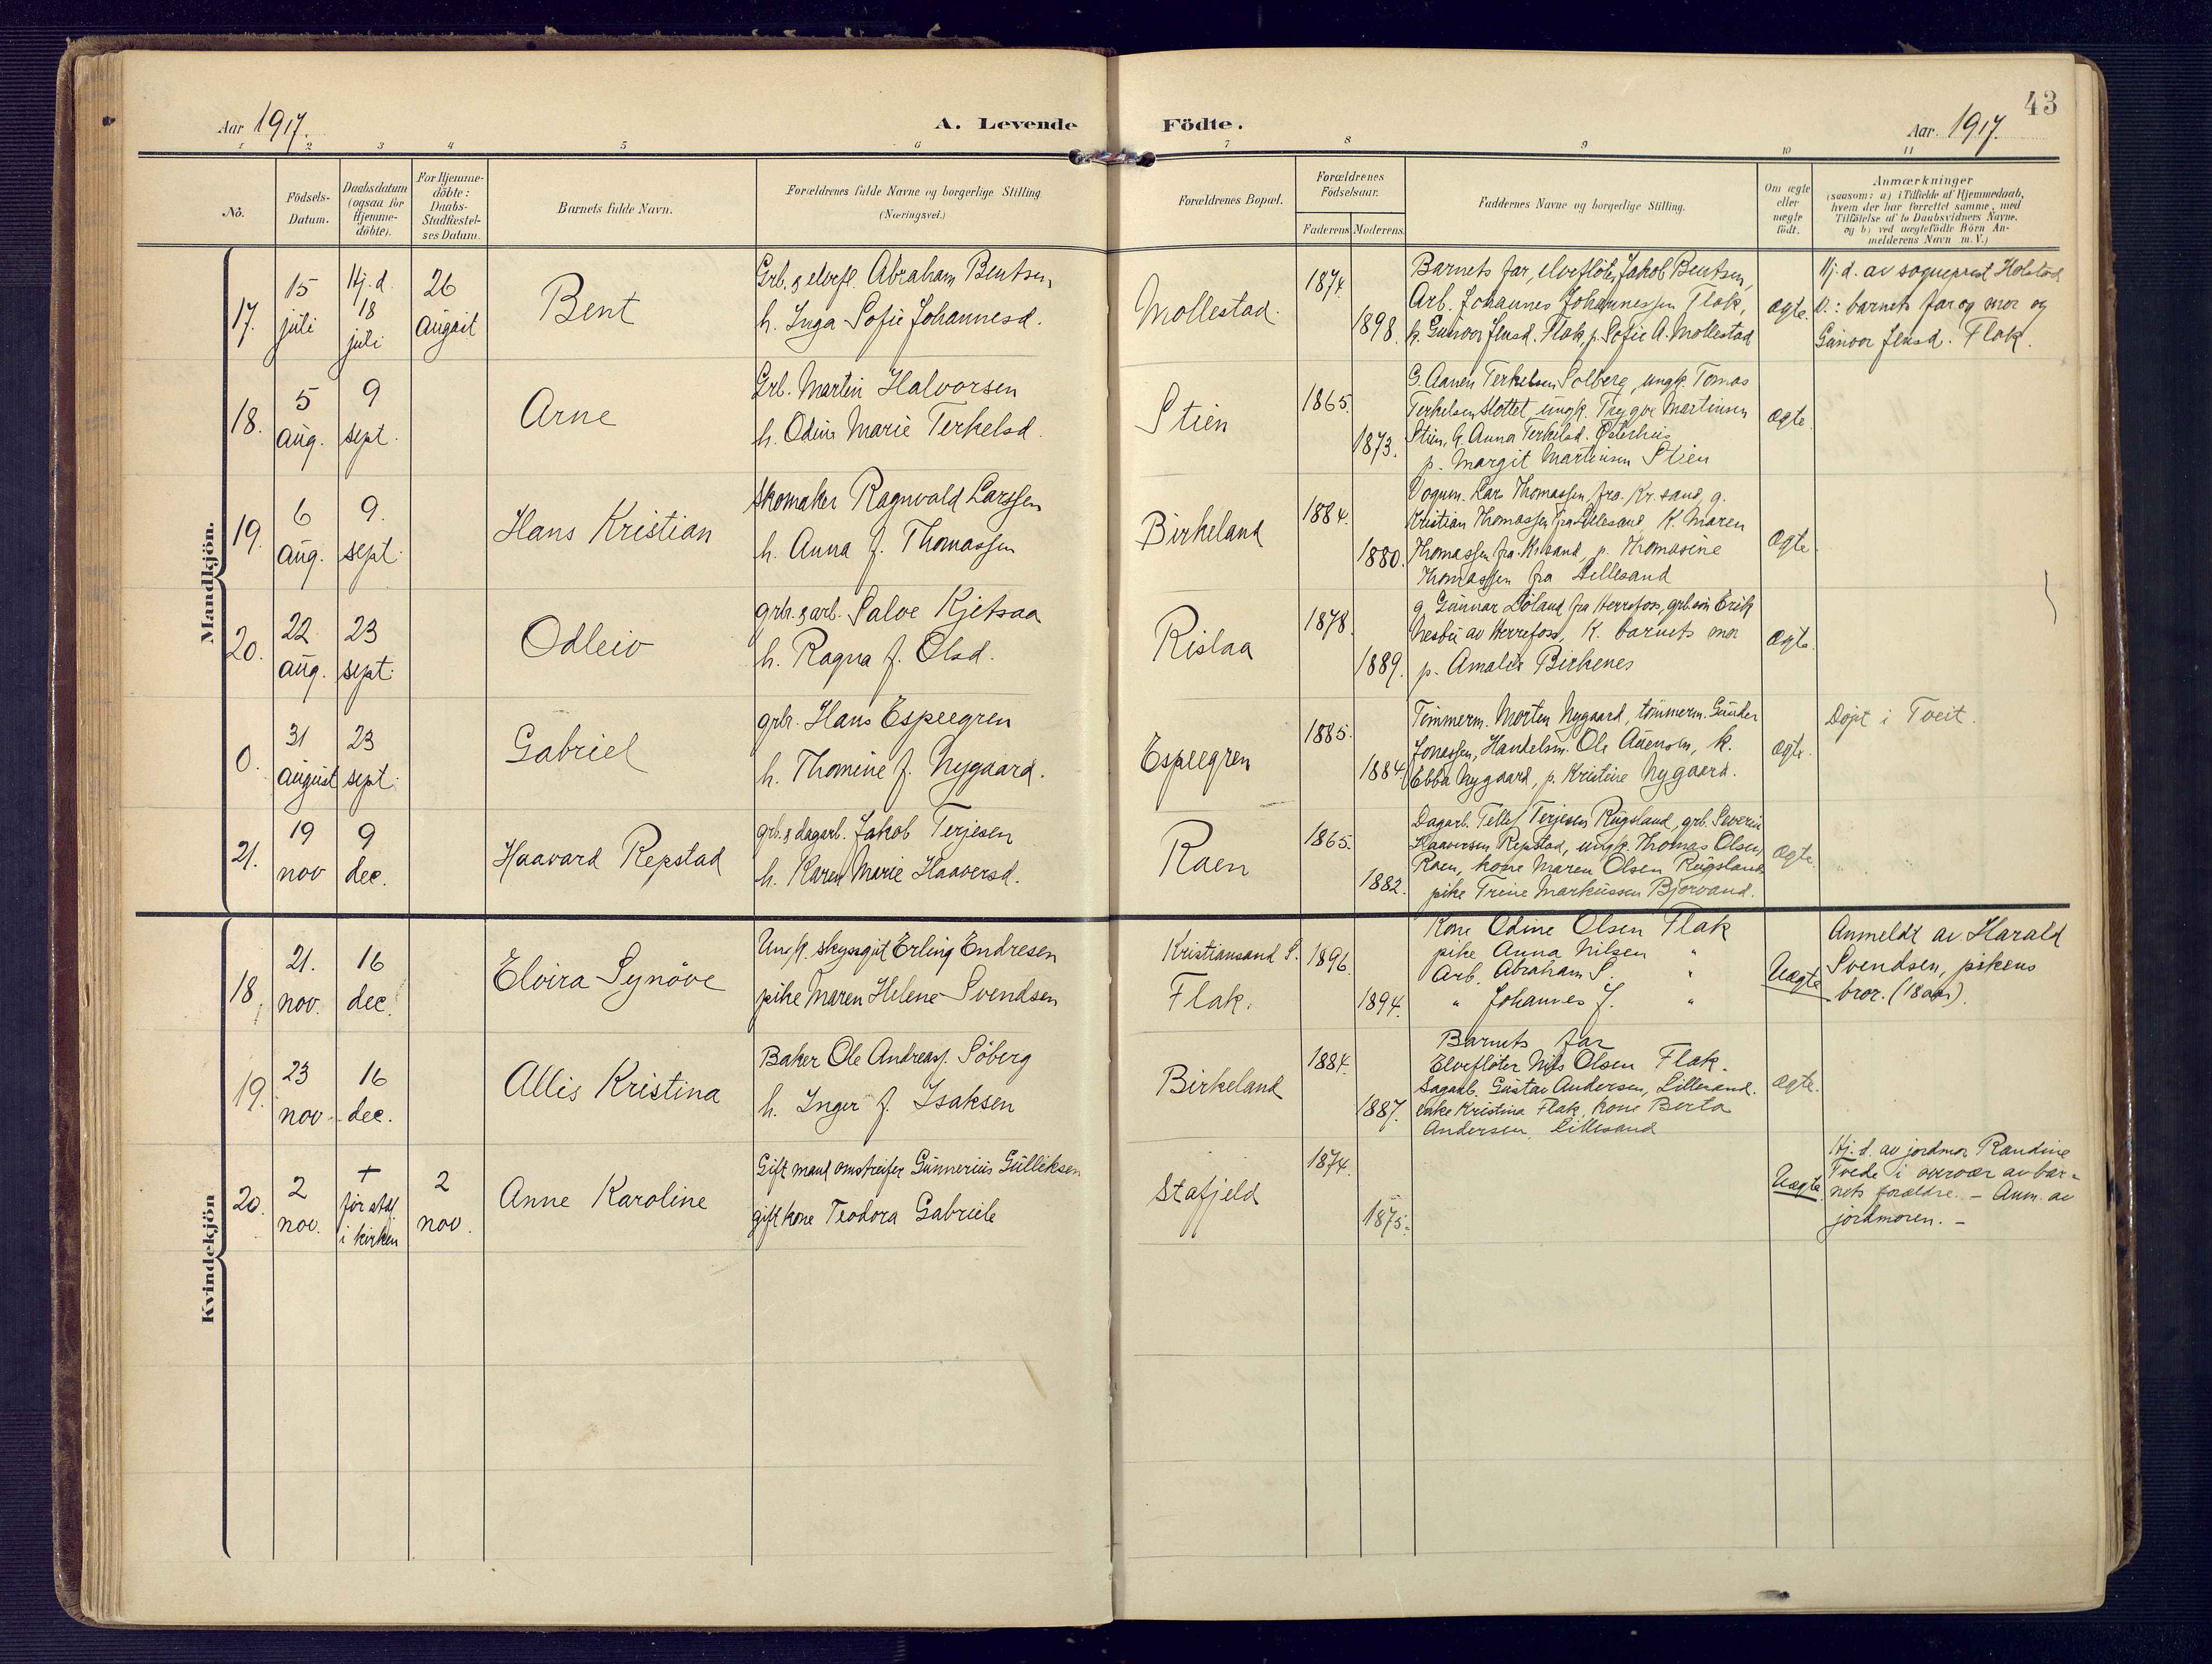 43
Aar 1917.
A. Levende Födte.
Aar. 1917.
1 2 3 4 5 6 7 8 9 10 11
No.
Födsels-
Datum.
Daabsdatum
(ogsaa for
Hjemme-
döbte).
For Hjemme-
döbte:
Daabs-
Stadfæstel-
ses Datum.
Barnets fulde Navn.
Forældrenes fulde Navne og borgerlige Stilling
(Næringsvei.)
Forældrenes Bopæl.
Forældrenes
Födselsaar.
Faderens Moderens.
Faddernes Navne og borgerlige Stilling.
Om ægte
eller
uægte
födt.
Anmærkninger
(saasom: a) i Tilfælde af Hjemmedaab,
hvem der har forrettet samme, med
Tilföielse af to Daabsvidners Navne.
og b) ved uægtefödte Börn An-
melderens Navn m. V.)
Mandkjön.
17.
15
juli
Hj. d.
18
juli
26
August
Bent
Grb. & elvefl. Abraham Bentsen
h. Inga Sofie Johannesd.
Mollestad.
1874.
1898.
Barnets far, elveflöter Jakob Bentsen,
Arb. Johannes Johannessen Flak,
k. Gunvor Jensd. Flak, p. Sofie A. Mollestad
ægte.
Hj. d. av sogneprest Holstad
v.: barnets far og mor og
Gunvor Jensd. Flak.
18.
5
aug.
9
sept.
Arne
Grb. Martin Halvorsen
h. Odine Marie Terkelsd.
Stien
1865.
1873.
G. Aanen Terkelsen Solberg, ungk. Tomas
Terkelsen Slottet, ungk. Trygve Martinsen
Stien, k. Anna Terkelsd. Østerhus
p. Margit Martinsen Stien
ægte.
19.
6
aug.
9.
sept.
Hans Kristian
Skomaker Ragnvald Larssen
h. Anna f. Thomassen
Birkeland
1884.
1880.
Vognm. Lars Thomassen fra Kr.sand, g.
Kristian Thomassen fra Lillesand, K. Maren
Thomassen fra Kr.sand, p. Thomasine
Thomassen fra Lillesand
ægte.
20.
22
aug.
23
sept.
Odleiv
grb. & arb. Salve Kjetsaa
h. Ragna f. Olsd.
Rislaa
1878.
1889.
g. Gunnar Löland fra Herrefoss, grb.sön Erik
Nesbü av Herrefoss, K. barnets mor
p. Amalie Birkenes
ægte.
0.
31
august
23
sept.
Gabriel
grb. Hans Espeegren
h. Thomine f. Nygaard.
Espeegren
1885.
1884.
Tömmerm. Morten Nygaard, tömmerm. Gunder
Jonassen, Handelsm. Ole Auensen, k.
Ebba Nygaard, p. Kristine Nygaard.
ægte.
Döpt i Tveit.
21.
19
nov
9
dec.
Haavard Repstad
grb. & dagarb. Jakob Terjesen
h. Karen Marie Haaversd.
Raen
1865.
1882.
Dagarb. Tellef Terjesen Rugsland, grb. Severin
Haaversen Repstad, ungk. Thomas Olsen,
Raen, kone Maren Olsen Rugsland
pike Trine Markussen Bjorvand.
ægte.
Kvindekjön
18.
21.
nov.
16
dec.
Elvira Synöve
Ungk. skyssgut Erling Endresen
pike Maren Helene Svendsen
Kristiansand S.
Flak.
1896.
1894.
Kone Odine Olsen Flak
pike Anna Nilsen "
Arb. Abraham S. "
" Johannes J. "
Uægte
Anmeldt av Harald
Svendsen, pikens
bror. (18 aar).
19.
23
nov.
16
dec.
Allis Kristina
Baker Ole Andreas. Söberg
h. Inger f. Isaksen
Birkeland
1884.
1887.
Barnets far
Elveflöter Nils Olsen Flak.
Sagarb. Gustav Andersen, Lillesand.
enke Kristina Flak, kone Berta
Andersen, Lillesand
ægte.
20.
2
nov.
+
för stdf
i kirken
2
nov.
Anne Karoline
Gift mand omstreifer Gunnerius Gulliksen
gift kone Teodora Gabriele
Stafjeld
1874.
1875.
Uægte
Hj. d. av jordmor Randine
Tvede i overvær av bar-
nets forældre. - Anm. av
jordmoren. -